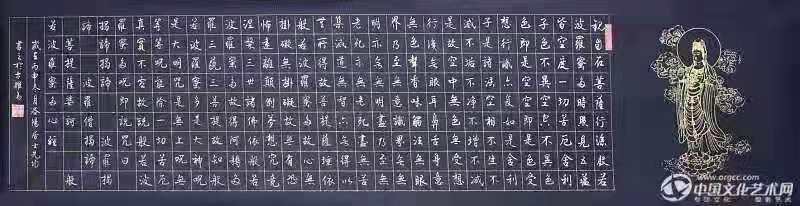 觀自在菩薩行深般若
波羅蜜多時照見五蘊
皆空度一切苦厄舍利
子色不異空空不異色
色即是空空即是色受
想行識亦復如是舍利
子是諸法空相不生不
滅不垢不淨不增不減
是故空中無色無受想
行識無眼耳鼻舌身意
無色聲香味觸法無眼
界乃至無意識界無無
明亦無無明盡乃至無
老死亦無老死盡無苦
集滅道無智亦無得以
無所得故菩提薩埵依
般若波羅蜜多故心無
掛礙無掛礙故無有恐
怖遠離顛倒夢想究竟
涅槃三世諸佛依般若
波羅蜜多故得阿耨多
羅三藐三菩提故知般
若波羅蜜多是大神咒
是大明咒是無上咒是
無等等咒能除一切苦
真實不虛故說般若波
羅蜜多咒即說咒曰
揭諦揭諦 波羅揭
諦 波羅僧揭諦
菩提薩婆訶 般
若波羅蜜多心經
歲在丙申冬月洛陽居士
書之於古雒
中国文化艺术网
www.orgcc.com